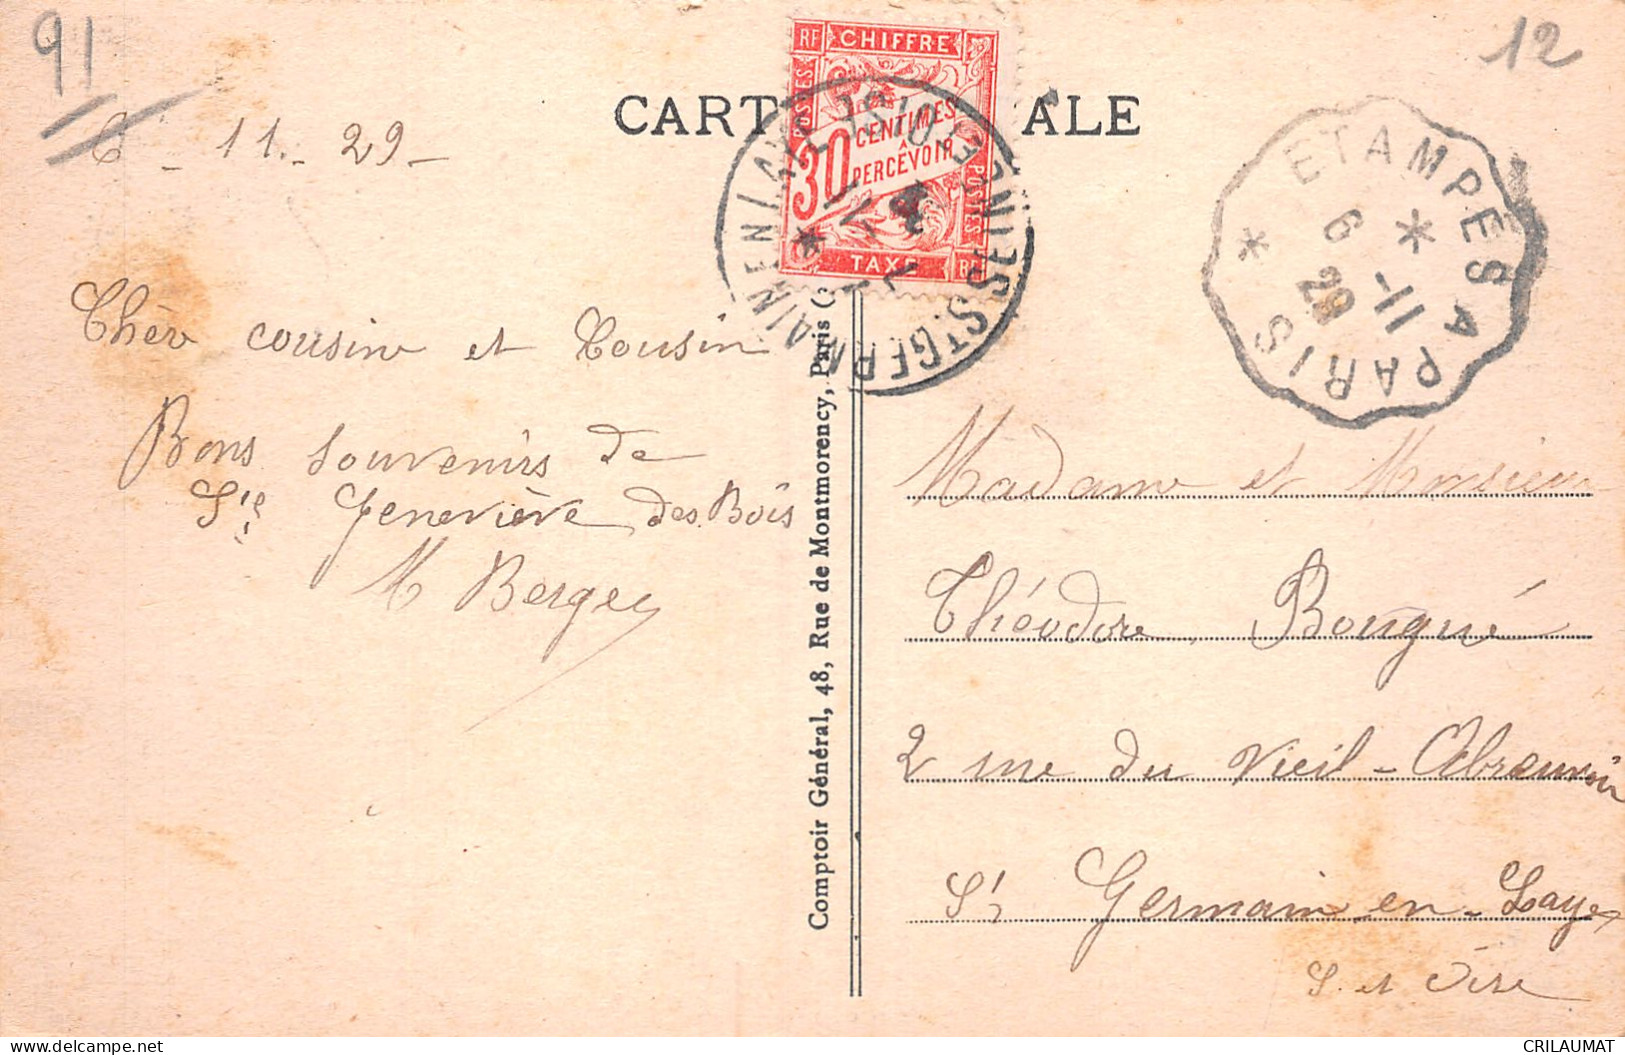 91
12
CART ALE
RF CHIFFRE RF
POSTES
30 CENTIMES
À
PERCEVOIR
POSTES
TAXE
RF
ST GERMAIN EN LAYE
SEINE ET OISE
ETAMPES A PARIS
6 -11
29
6 - 11. - 29 -
Chèr cousine et Cousin
Bons souvenirs de
Ste Geneviève des Bois
M Berger
Comptoir Général, 48, Rue de Montmorency, Paris (
Madame et Monsieur
Théodore Bougué
2 rue du Vieil-Abreuvoir
St Germain-en-Laye
S. et Oise
CRILAUMAT